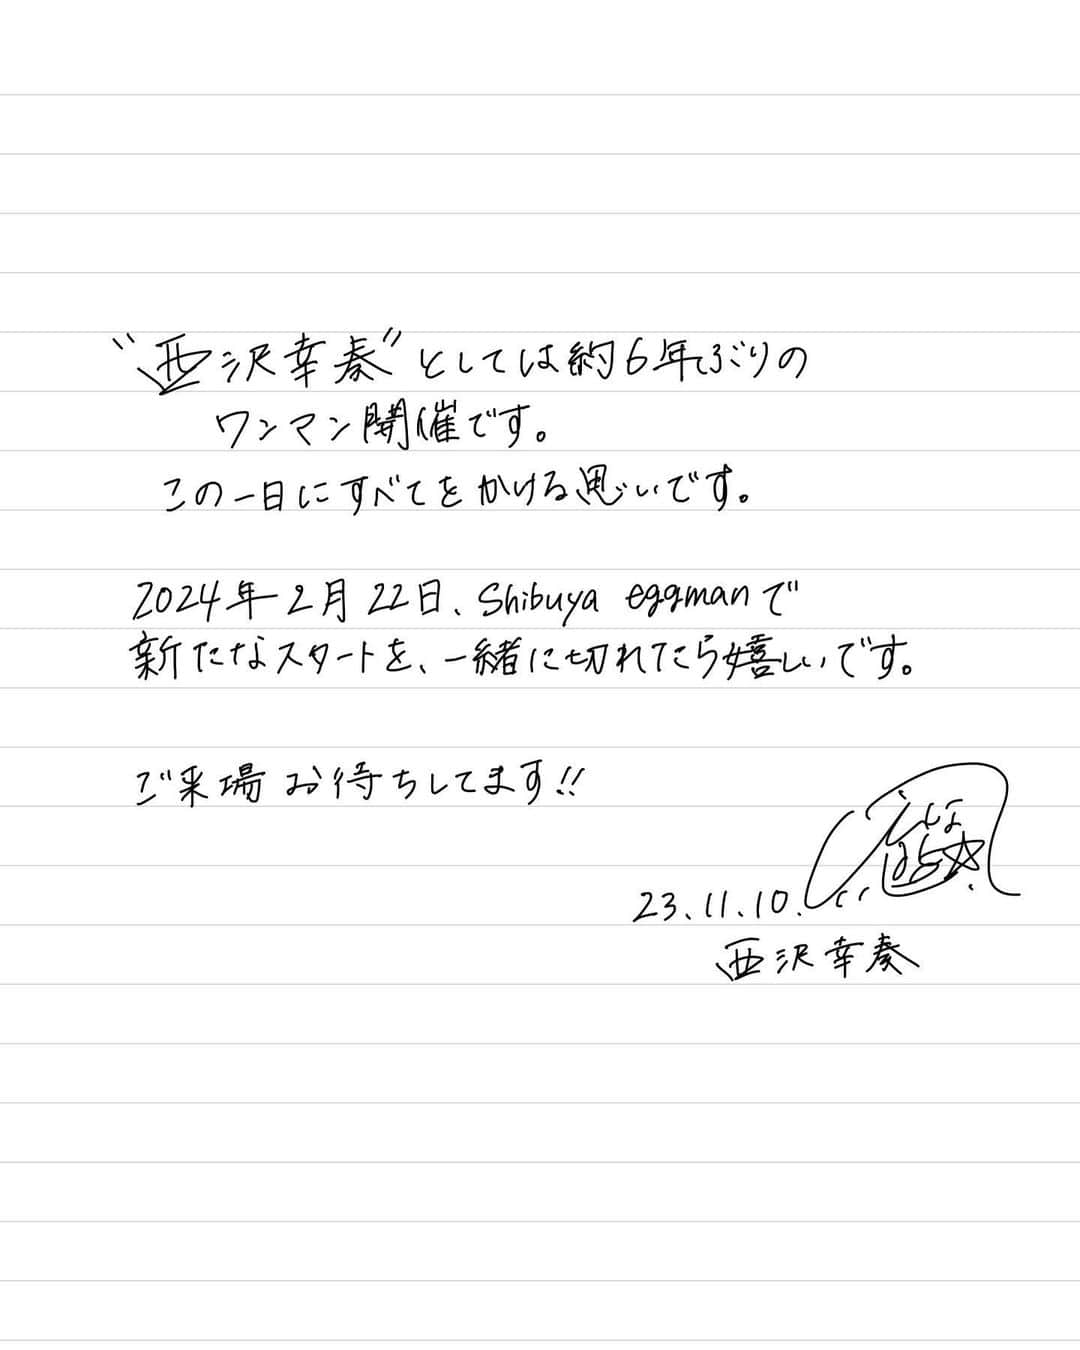 “西沢幸奏”としては約6年ぶりの
ワンマン開催です。
この一日にすべてをかける思いです。
2024年2月22日、Shibuya eggmanで
新たなスタートを、一緒に切れてたら嬉しいです。
ご来場お待ちしてます!!
23.11.10.
西沢幸奏